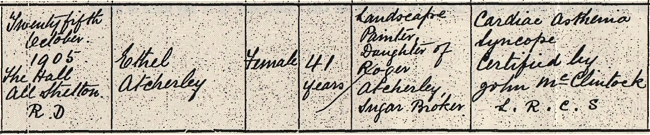 Twenty fifth
October
1905
The Hall
All Stretton.
R.D
Ethel
Atcherley
Female
41
years
Landscape
Painter
Daughter of
Roger
Atcherley,
Sugar Broker
Cardiac Asthma
Syncope
Certified by
John McClintock
L.R.C.S